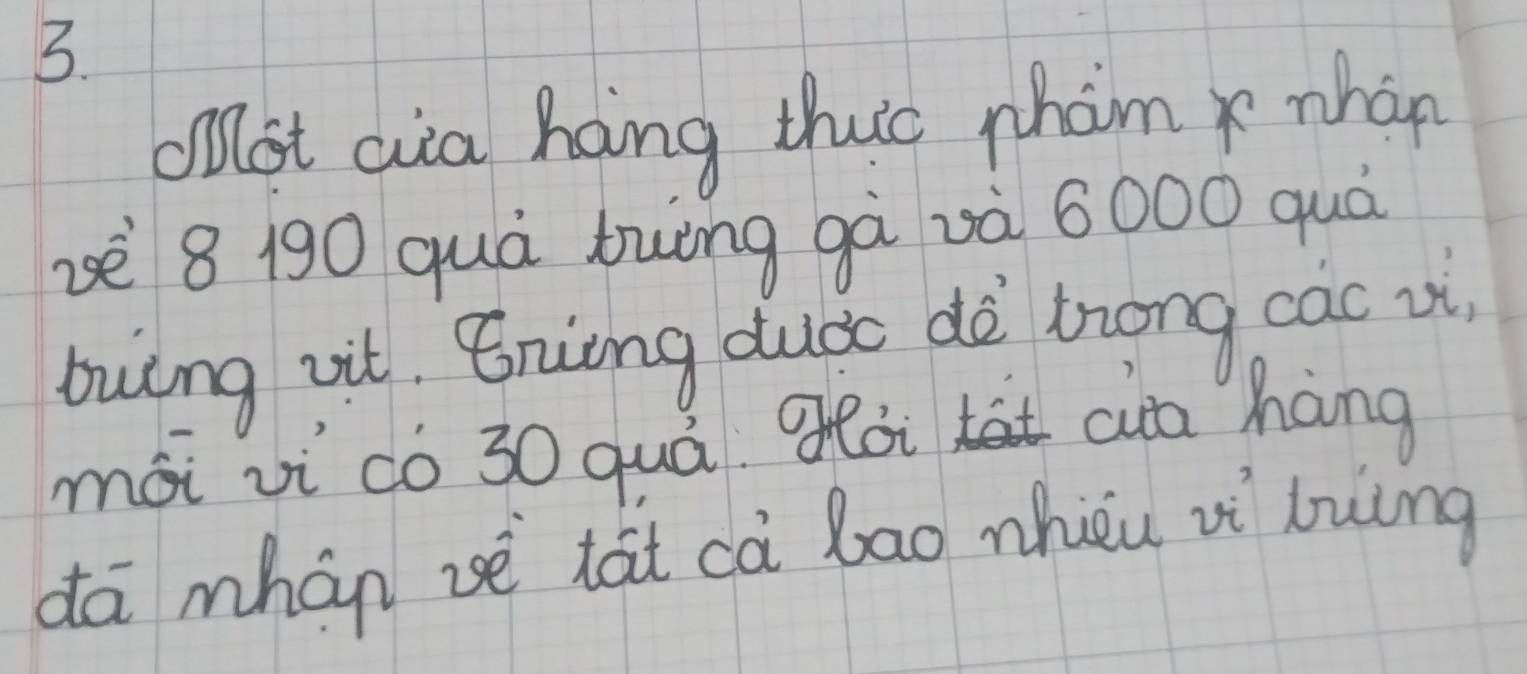 3.
Một cửa hàng thực phẩm nhập
về 8 190 quả trứng gà và 6000 quả
trứng vịt. Trứng được để trong các vỉ,
mỗi vỉ có 30 quả. Hỏi tất cửa hàng
đã nhập về tất cả bao nhiêu vỉ trứng